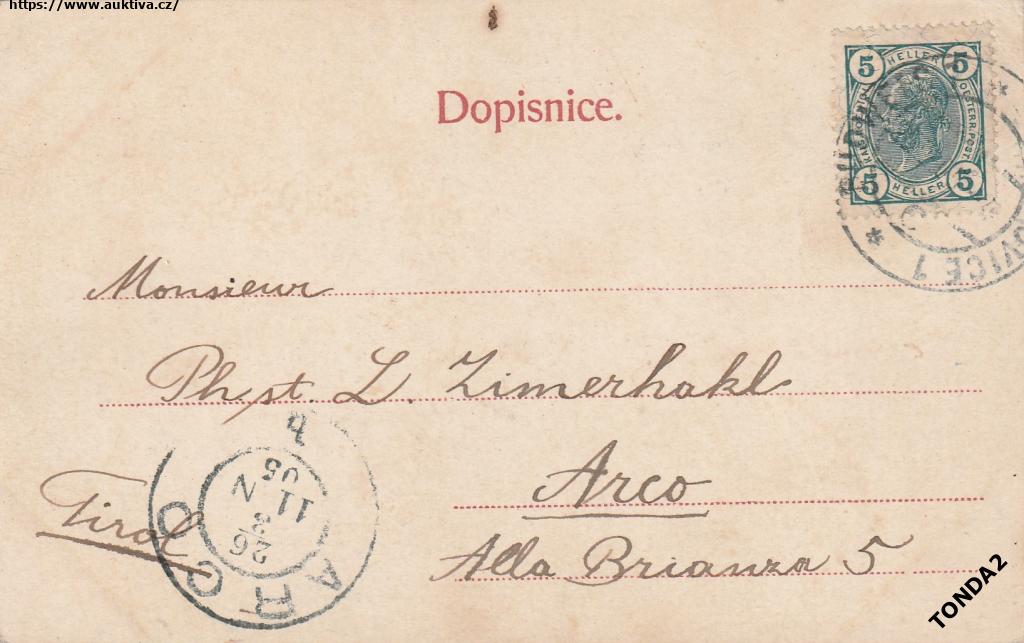 https://www.auktiva.cz/
Dopisnice.
5 HELLER 5
OESTERR. POST.
5 HELLER 5
OVICE 1
Monsieur
Phst. L. Zimerhakl
Arco
Tirol
Alla Brianza 5
ARCO
26
3
11 N
05
b
TONDA2